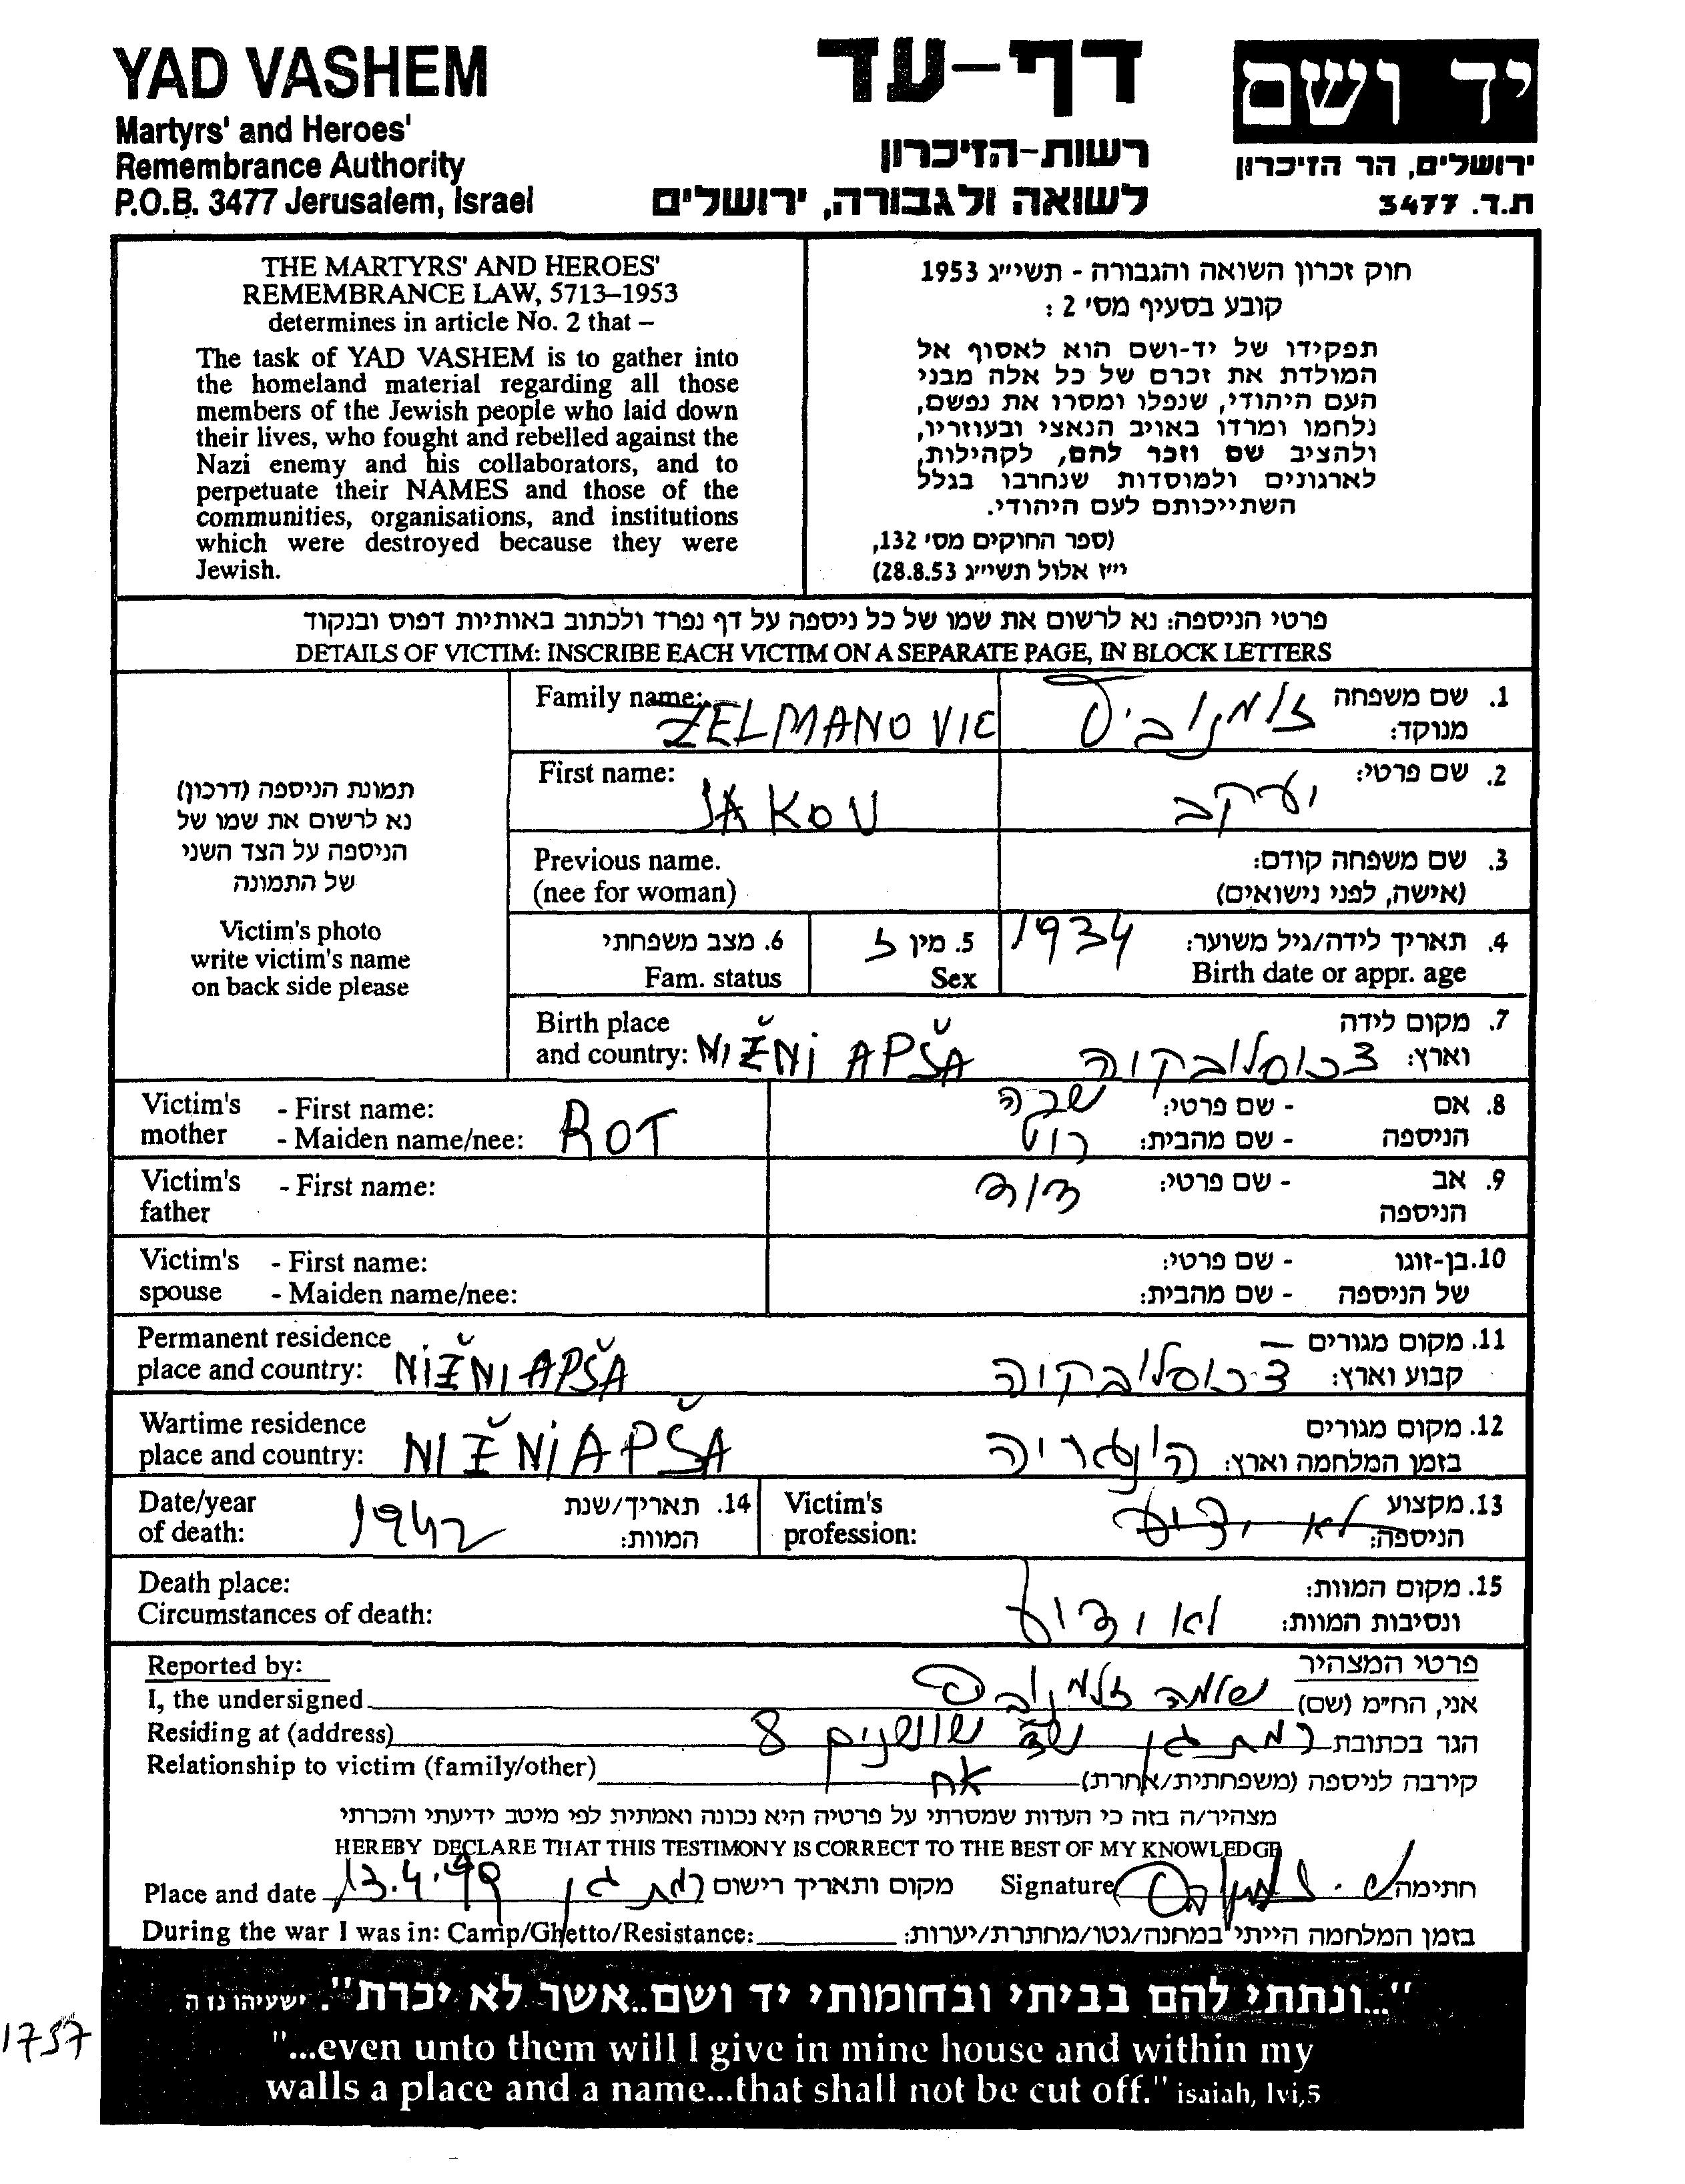 YAD VASHEM
Martyrs' and Heroes'
Remembrance Authority
P.O.B. 3477 Jerusalem, Israel
דף-עד
רשות-הזיכרון
לשואה ולגבורה, ירושלים
יד ושם
ירושלים, הר הזיכרון
ת.ד. 3477
THE MARTYRS' AND HEROES'
REMEMBRANCE LAW, 5713–1953
determines in article No. 2 that –
The task of YAD VASHEM is to gather into
the homeland material regarding all those
members of the Jewish people who laid down
their lives, who fought and rebelled against the
Nazi enemy and his collaborators, and to
perpetuate their NAMES and those of the
communities, organisations, and institutions
which were destroyed because they were
Jewish.
חוק זכרון השואה והגבורה - תשי״ג 1953
קובע בסעיף מס׳ 2 :
תפקידו של יד-ושם הוא לאסוף אל
המולדת את זכרם של כל אלה מבני
העם היהודי, שנפלו ומסרו את נפשם,
נלחמו ומרדו באויב הנאצי ובעוזריו,
ולהציב שם וזכר להם, לקהילות,
לארגונים ולמוסדות שנחרבו בגלל
השתייכותם לעם היהודי.
(ספר החוקים מס׳ 132,
י״ז אלול תשי״ג 28.8.53)
פרטי הניספה: נא לרשום את שמו של כל ניספה על דף נפרד ולכתוב באותיות דפוס ובנקוד
DETAILS OF VICTIM: INSCRIBE EACH VICTIM ON A SEPARATE PAGE, IN BLOCK LETTERS
תמונת הניספה (דרכון)
נא לרשום את שמו של
הניספה על הצד השני
של התמונה
Victim's photo
write victim's name
on back side please
Family name: ZELMANOVIC
1. שם משפחה
מנוקד: זלמנוביץ
First name: JAKOV
2. שם פרטי: יעקב
Previous name.
(nee for woman)
3. שם משפחה קודם:
(אישה, לפני נישואים)
6. מצב משפחתי
Fam. status
5. מין ז
Sex
4. תאריך לידה/גיל משוער: 1934
Birth date or appr. age
Birth place
and country: NIŽNI APŠA
7. מקום לידה
וארץ: צכוסלובקיה
Victim's mother - First name:
- Maiden name/nee: ROT
8. אם הניספה - שם פרטי: שבה
- שם מהבית: רוט
Victim's father - First name:
9. אב הניספה - שם פרטי: דוד
Victim's spouse - First name:
- Maiden name/nee:
10. בן-זוגו של הניספה - שם פרטי:
- שם מהבית:
Permanent residence
place and country: NIŽNI APŠA
11. מקום מגורים
קבוע וארץ: צכוסלובקיה
Wartime residence
place and country: NIŽNI APŠA
12. מקום מגורים
בזמן המלחמה וארץ: הונגריה
Date/year
of death: 1942
14. תאריך/שנת
המוות:
Victim's
profession:
13. מקצוע
הניספה: לא ידוע
Death place:
Circumstances of death:
15. מקום המוות:
ונסיבות המוות: לא ידוע
Reported by:
פרטי המצהיר
I, the undersigned
אני, הח״מ (שם) שלמה זלמנוביץ
Residing at (address)
הגר בכתובת רמת גן שד שושנים 8
Relationship to victim (family/other)
קירבה לניספה (משפחתית/אחרת) אח
מצהיר/ה בזה כי העדות שמסרתי על פרטיה היא נכונה ואמתית לפי מיטב ידיעתי והכרתי
HEREBY DECLARE THAT THIS TESTIMONY IS CORRECT TO THE BEST OF MY KNOWLEDGE
Place and date 13.4.99
מקום ותאריך רישום רמת גן
Signature
חתימה ש. זלמנוביץ
During the war I was in: Camp/Ghetto/Resistance:
בזמן המלחמה הייתי במחנה/גטו/מחתרת/יערות:
"...ונתתי להם בביתי ובחומותי יד ושם..אשר לא יכרת". ישעיהו נו ה
"...even unto them will I give in mine house and within my
walls a place and a name...that shall not be cut off." isaiah, lvi,5
1757